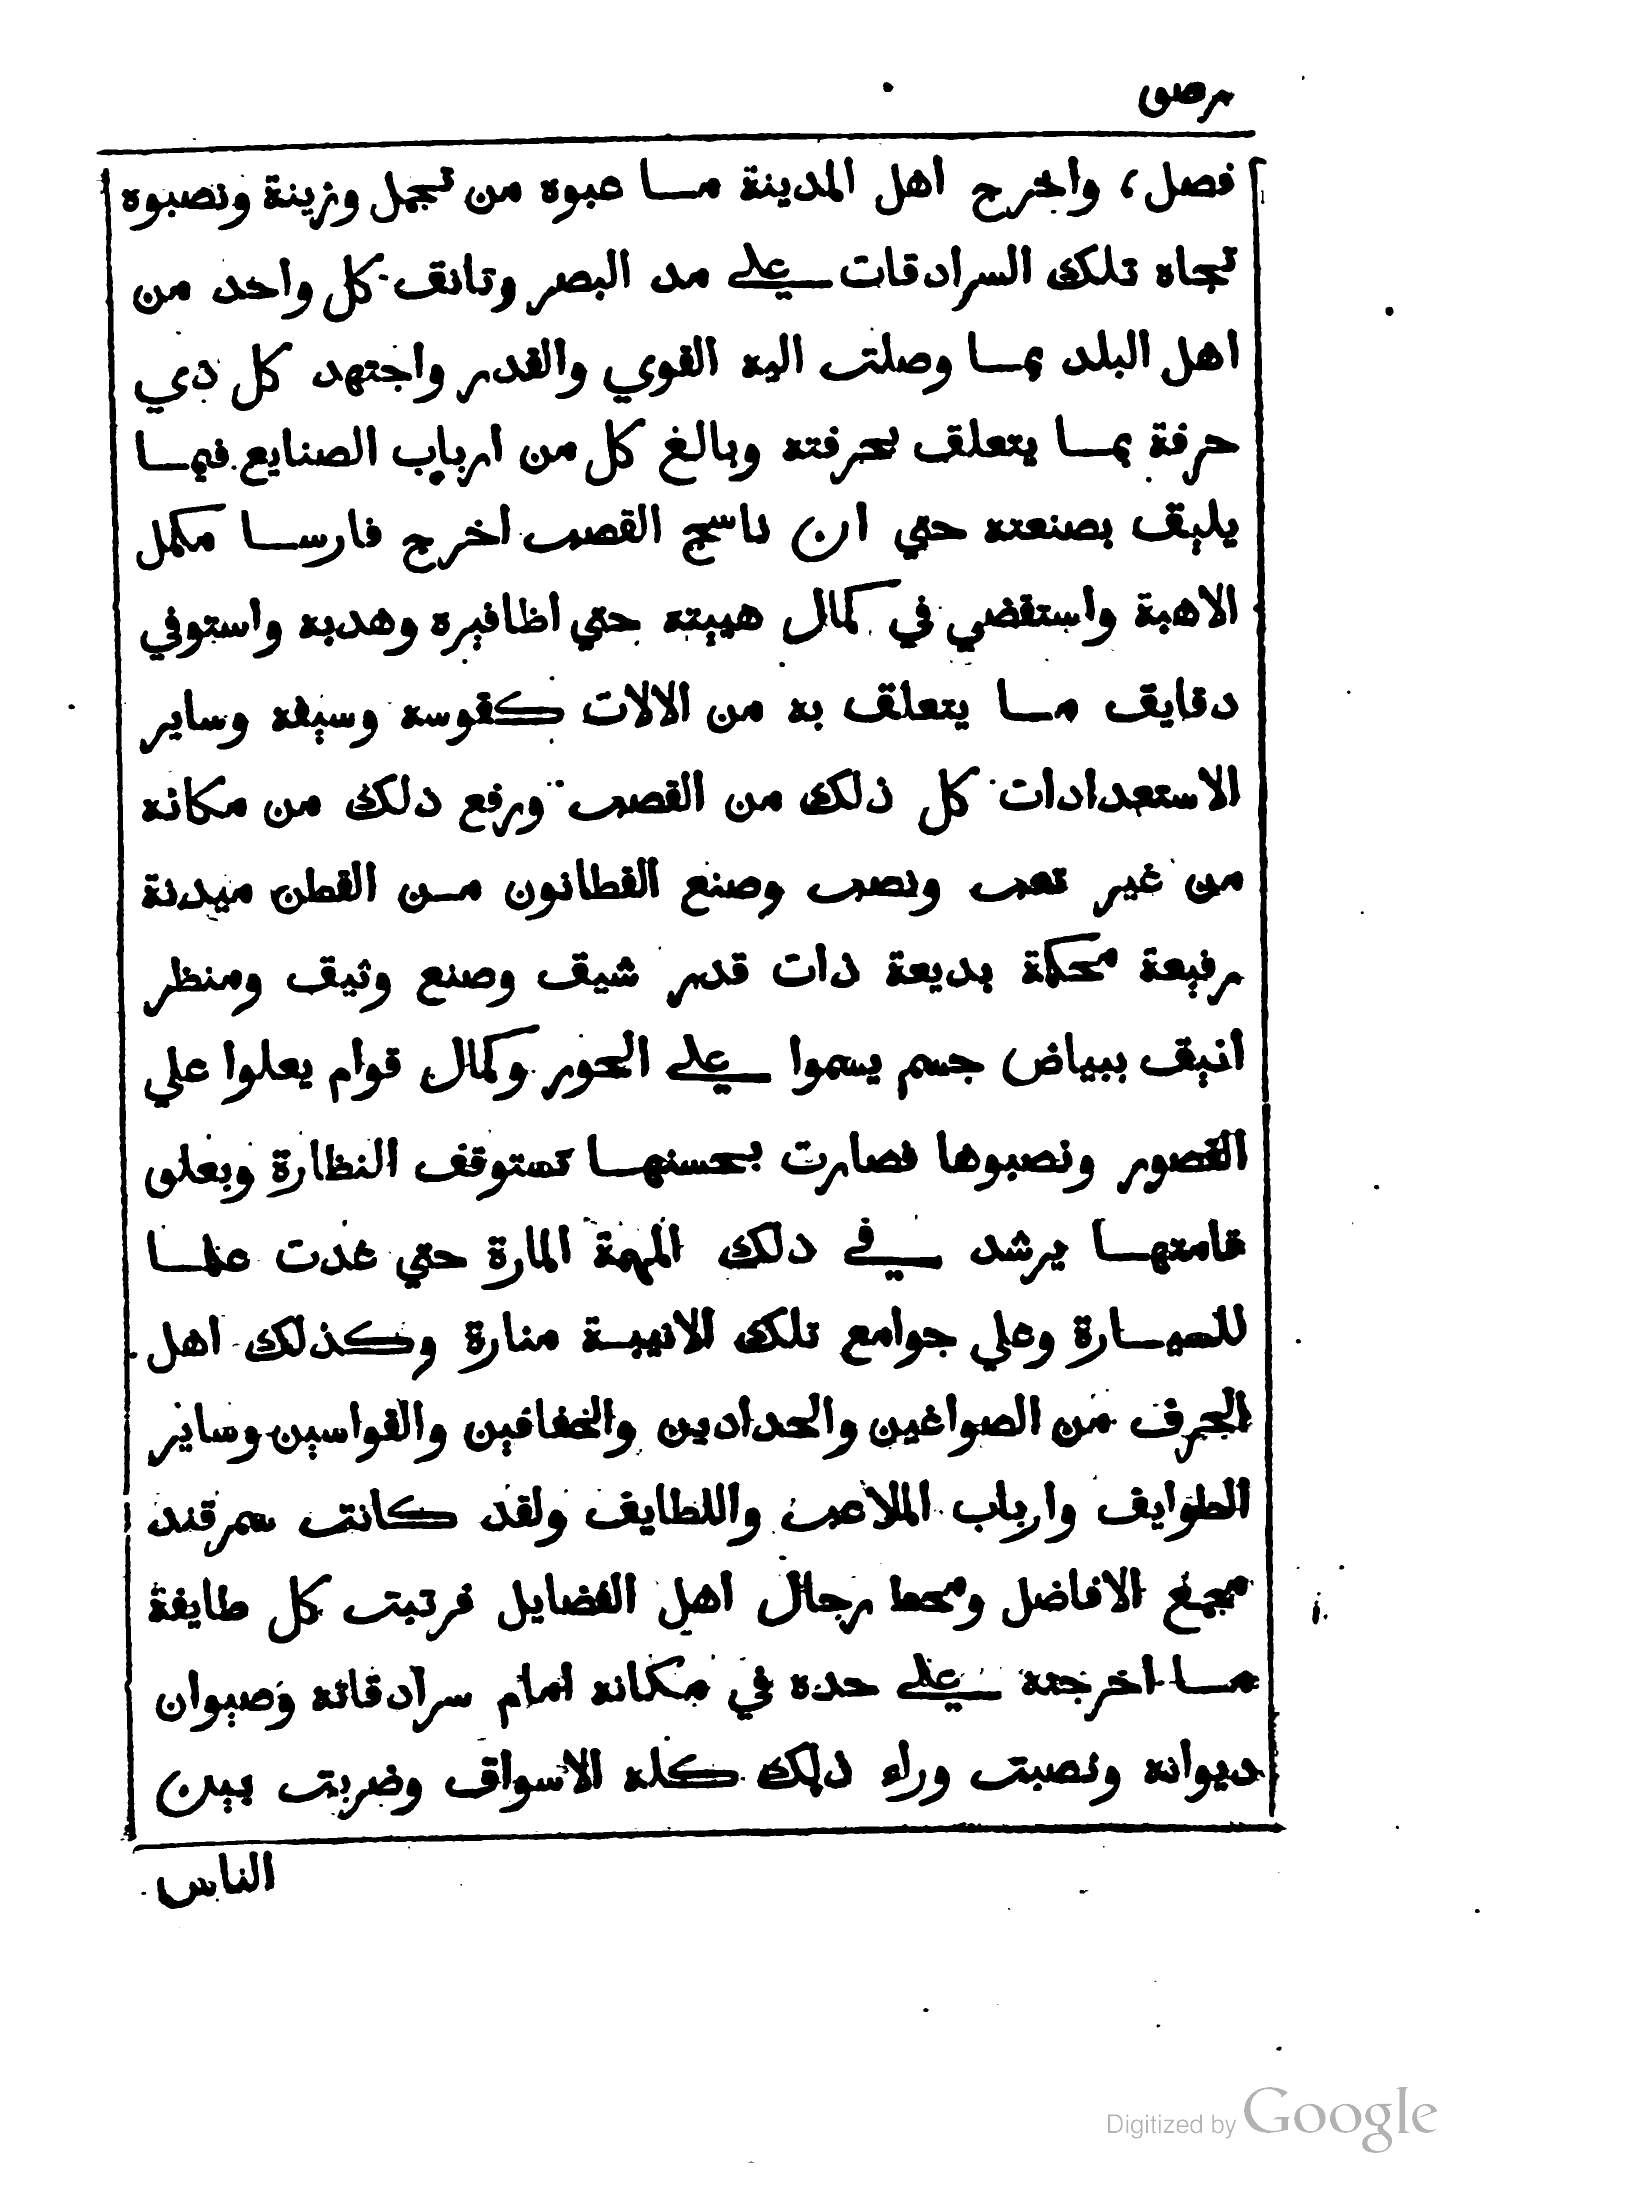 رصو
فصل، واخرج اهل المدينة مـا عبوه من تجمل وزينة ونصبوه
تجاه تلك السرادقات علي مد البصر وتانق كل واحد من
اهل البلد بمـا وصلت اليه القوي والقدر واجتهد كل ذي
حرفة بمـا يتعلق بحرفته وبالغ كل من ارباب الصنايع فيمـا
يليق بصنعته حتي ان ناسج القصب اخرج فارسـا مكمل
الاهبة واستقضي في كمال هيبته حتي اظافيره وهدبه واستوفي
دقايق مـا يتعلق به من الالات كقوسه وسيفه وساير
الاستعدادات كل ذلك من القصب ورفع دلك من مكانه
من غير تعب ونصب وصنع القطانون مـن القطن ميدنة
رفيعة محكمة بديعة ذات قدر شيق وصنع وثيق ومنظر
انيق ببياض جسم يسموا علي الحور وكمال قوام يعلوا علي
القصور ونصبوها فصارت بحسنهـا تستوقف النظارة وبعلو
قامتهـا يرشد في دلك المهمة المارة حتي غدت علمـا
للصيـارة وعلي جوامع تلك الانيبـة منارة وكذلك اهل
الحرف من الصواغين والحدادين والخفافين والقواسين وساير
الطوايف وارباب الملاعب واللطايف ولقد كانت سمرقند
مجمع الافاضل ومحط رجال اهل الفضايل فرتبت كل طايفة
مـا اخرجته علي حده في مكانه امام سرادقاته وصيوان
ديوانه ونصبت وراء ذلك كله الاسواق وضربت بين
الناس
Digitized by Google